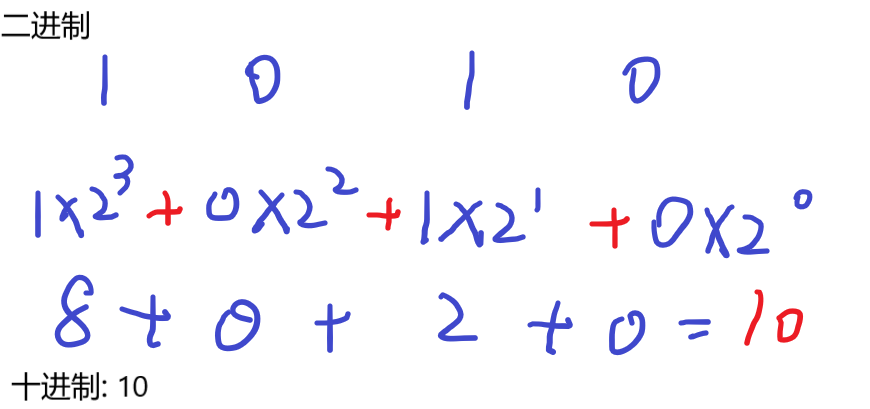 二进制
1 0 1 0
1×2³ + 0×2² + 1×2¹ + 0×2⁰
8 + 0 + 2 + 0 = 10
十进制: 10